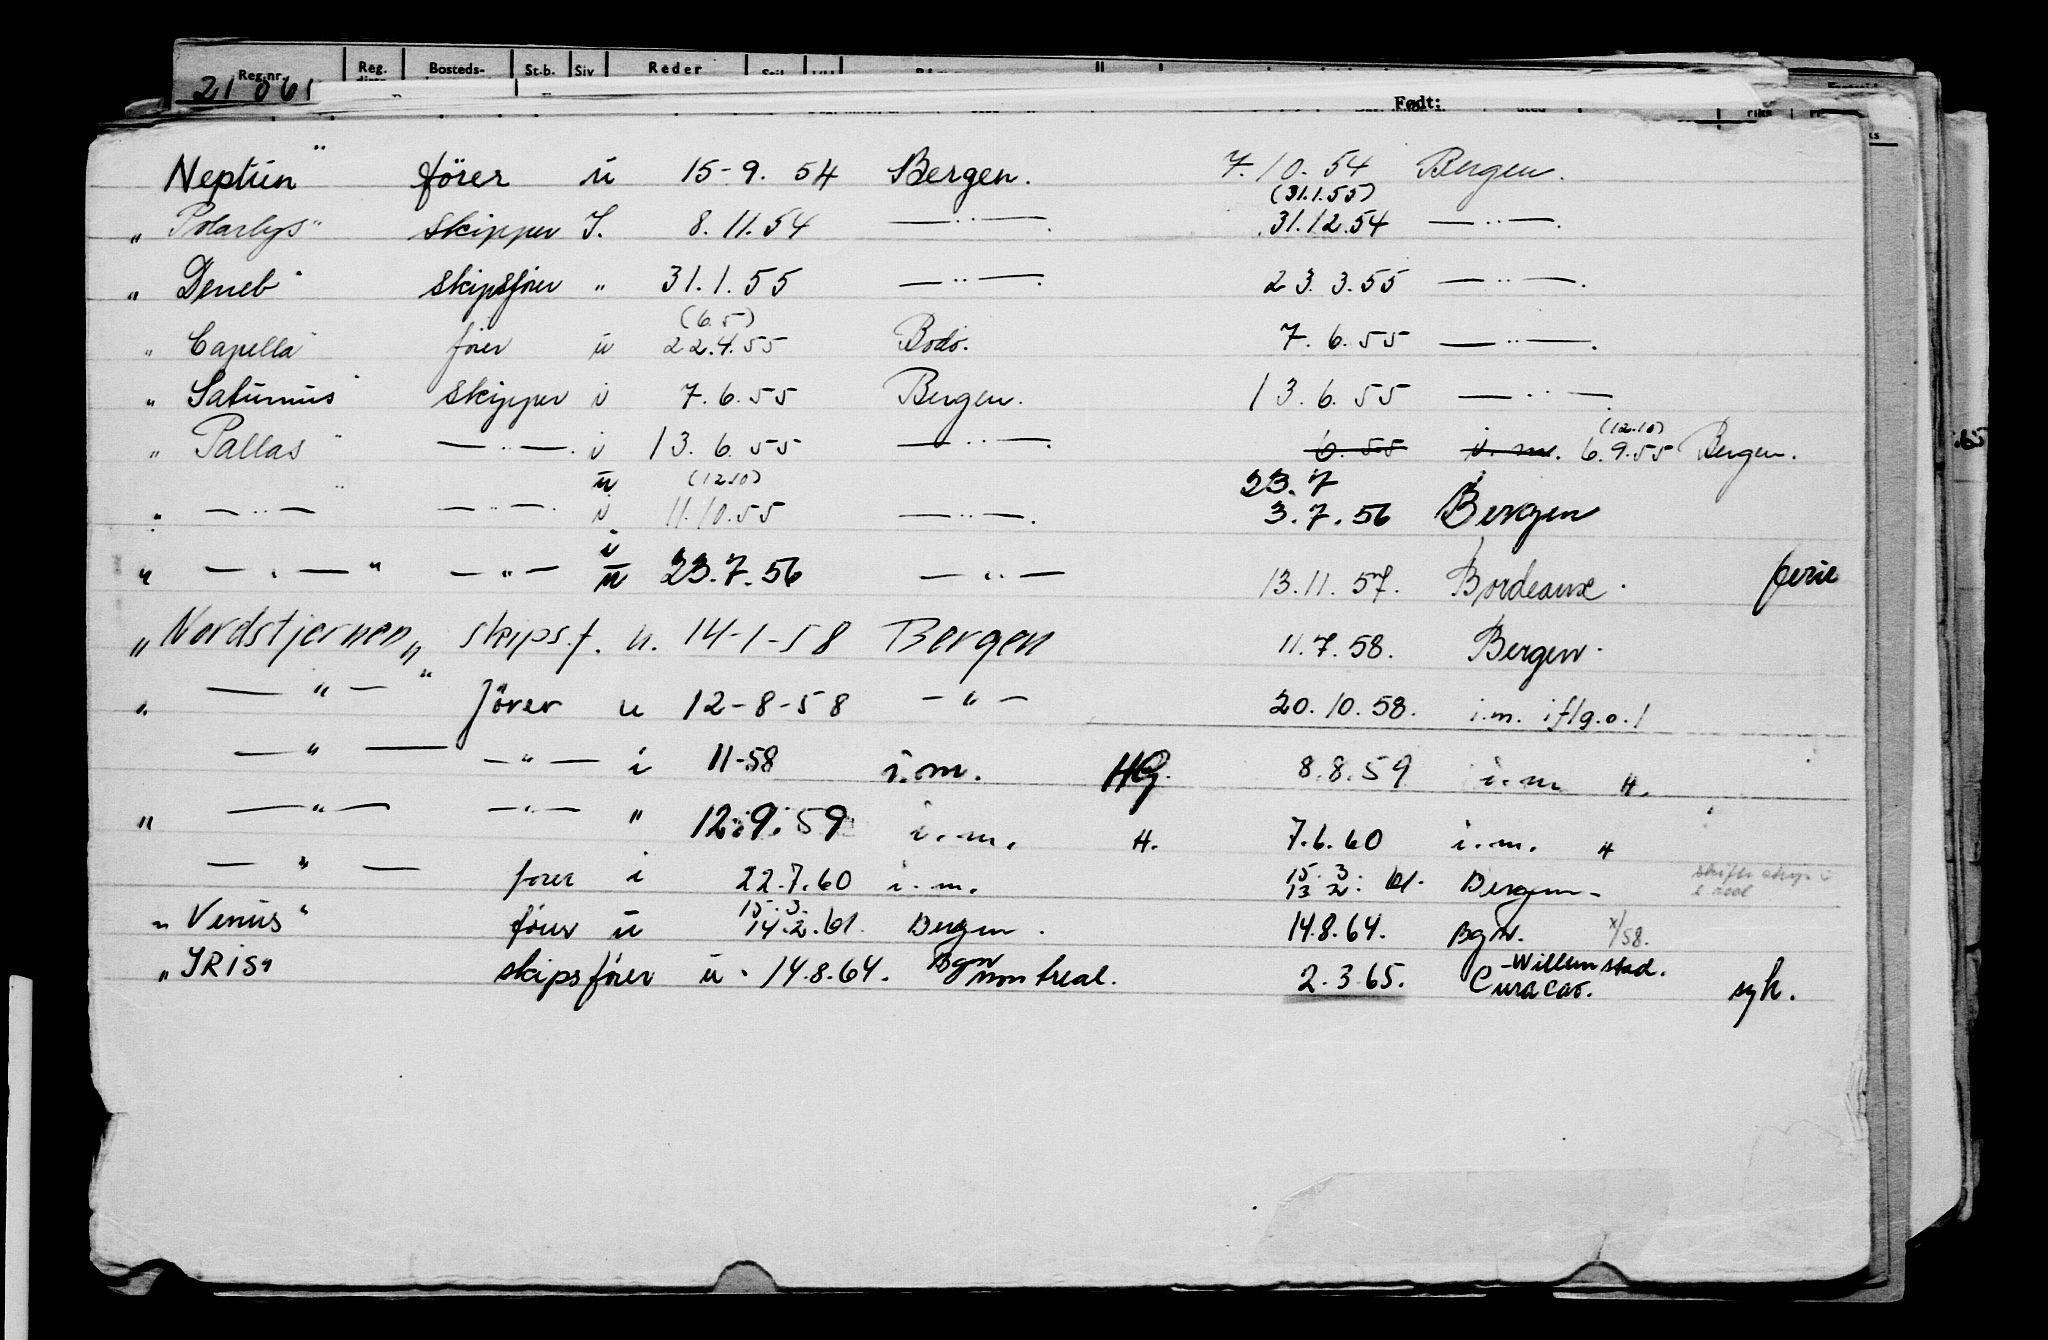 Reg.nr. Reg. Bosteds- St.b. Siv Reder
21 061
Født:
Neptun" fører u 15-9. 54 Bergen. 7.10.54 Bergen.
(31.1.55)
" Polarlys" skipper I. 8.11.54 —"— 31.12.54 —"—
" Deneb" skipsfører " 31.1.55 —"— 23.3.55 —"—
(6.5)
" Capella" fører u 22.4.55 Bodö. 7.6.55 —"—
" Saturnus" skipper i 7.6.55 Bergen. 13.6.55 —"—
(12.10)
" Pallas" —"— i 13.6.55 —"— 6.55 i.m. 6.9.55 Bergen.
u (12.10) 23.7
" —"— " —"— i 11.10.55 —"— 3.7.56 Bergen
i
" —"— " —"— u 23.7.56 —"— 13.11.57. Bordeaux. ferie
" Nordstjernen" skips.f. u. 14-1-58 Bergen 11.7.58. Bergen.
" —"— " förer u 12-8-58 —"— 20.10.58. i.m. iflg.o.l
—"— —"— i 11-58 i.m. HG. 8.8.59 i.m H.
" —"— —"— " 12.9.59 i.m. H. 7.6.60 i.m. H
—"— fører i 22.7.60 i.m. 15.3. 13 2. 61. Bergen-
15.3.
" Venus" fører u 14.2.61. Bergen. 14.8.64. Bgn. x/58.
" IRIS" skipsfører u. 14.8.64. Bgn montreal. 2.3.65. -Willemstad. Curacao. syk.